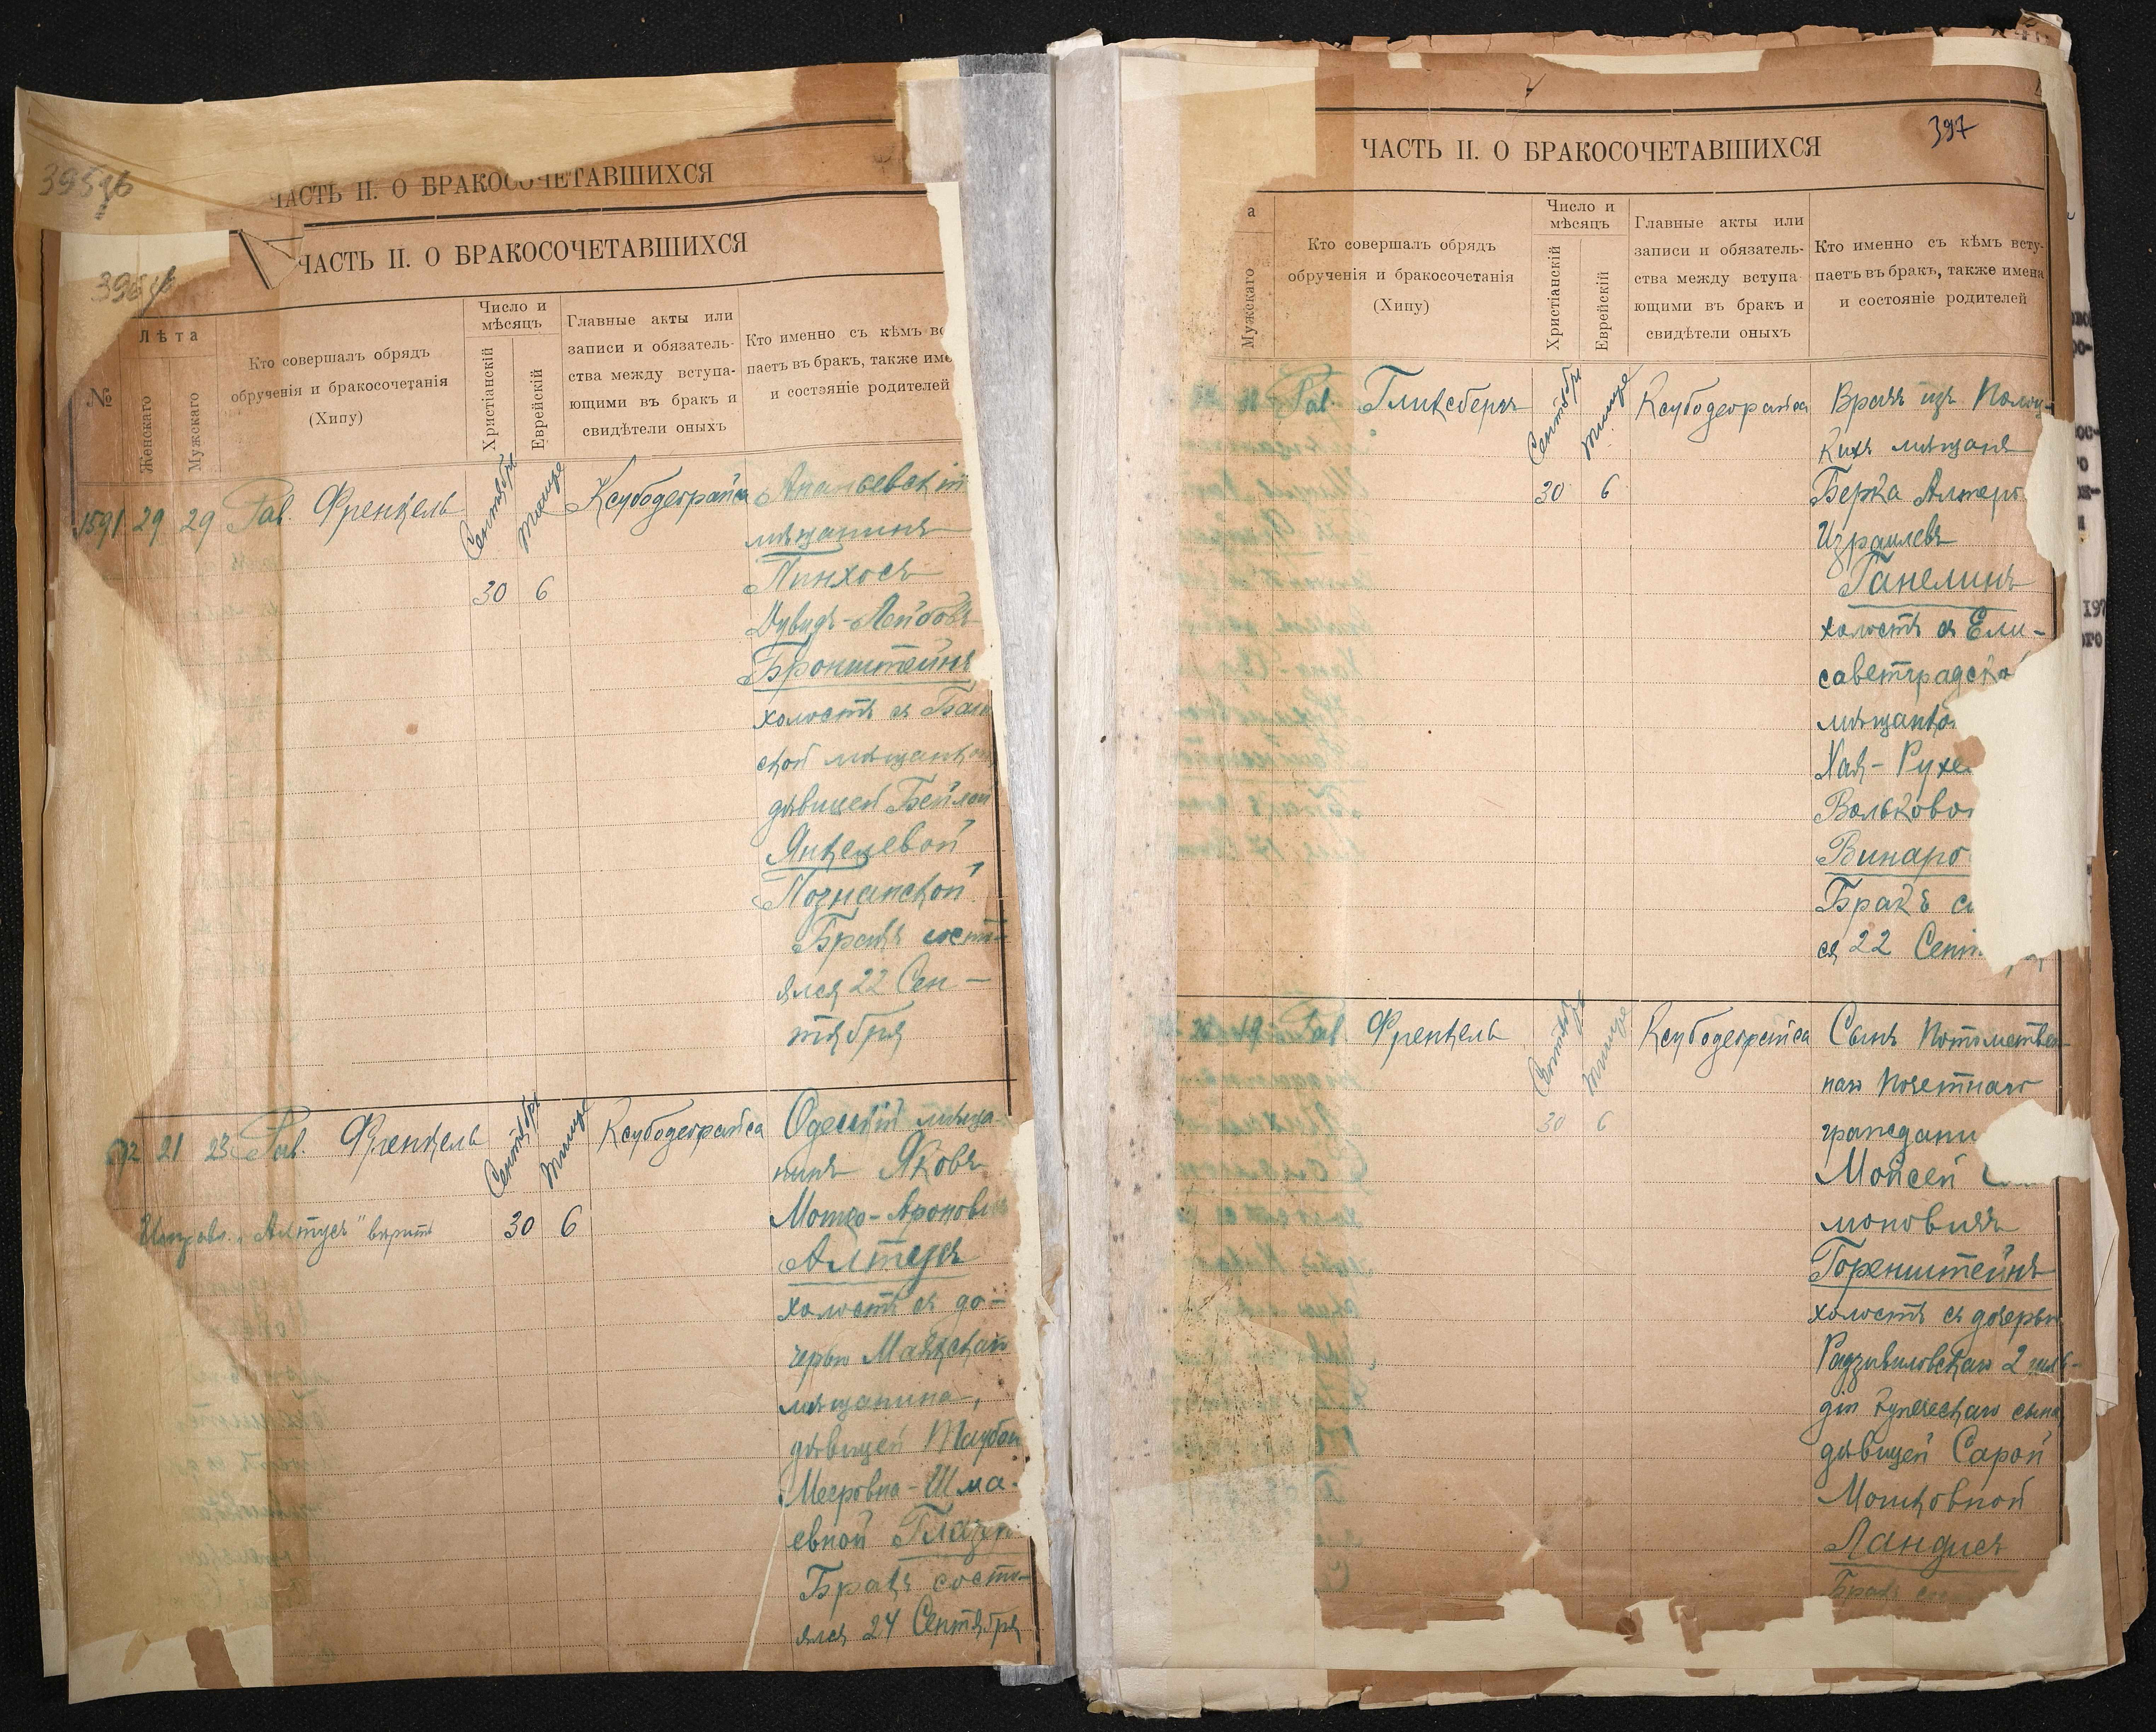 ЧАСТЬ II. О БРАКОСОЧЕТАВШИХСЯ
ЧАСТЬ II. О БРАКОСОЧЕТАВШИХСЯ
№
Лѣта
Женскаго
Мужскаго
Кто совершалъ обрядъ
обрученія и бракосочетанія
(Хипу)
Число и
мѣсяцъ
Христіанскій
Еврейскій
Главные акты или
записи и обязатель-
ства между вступа-
ющими въ бракъ и
свидѣтели оныхъ
Кто именно съ кѣмъ вс
паетъ въ бракъ, также име
и состояніе родителей
1591 29 29 Рав. Френкель
Сентября
Тишре
30 6
Ксубодеорайса
Ананьевскій
мѣщанинъ
Пинхосъ
Дувидъ-Лейбовъ
Бронштейнъ
холостъ съ
ской мѣщанкой
дѣвицей Бейлой
Янкелевой
Познанской
Бракъ состо
ялся 22 Сен-
тября
92 21 23 Рав. Френкель
Исправл. "Алтусъ" вѣрить
Сентября
Тишре
30 6
Ксубодеорайса
Одесскій мѣща-
нинъ Яковъ
Мошко-Ароновъ
Алтусъ
холостъ съ до-
черью Маякскаго
мѣщанина,
дѣвицей Таубой
Мееровна-Шма-
евной Глазер
Бракъ состо-
ялся 24 Сентября
397
ЧАСТЬ II. О БРАКОСОЧЕТАВШИХСЯ
а
Мужскаго
Кто совершалъ обрядъ
обрученія и бракосочетанія
(Хипу)
Число и
мѣсяцъ
Христіанскій
Еврейскій
Главные акты или
записи и обязатель-
ства между вступа-
ющими въ бракъ и
свидѣтели оныхъ
Кто именно съ кѣмъ всту-
паетъ въ бракъ, также имена
и состояніе родителей
Рав. Гликсбергъ
Сентября
Тишре
30 6
Ксубодеорайса
Врачъ изъ Полоц-
кихъ мѣщанъ
Берка Алтеръ
Израилевъ
Ганелинъ
холостъ съ Ели-
саветградско
мѣщанко
Хая-Рухе
Вольково
Винаро
Бракъ с
ся 22 Сент
Рав. Френкель
Сентября
Тишре
30 6
Ксубодеорайса
Сынъ Потомствен-
наго Почетнаго
граждани
Мойсей
моновичъ
Горенштейнъ
холостъ съ дочерью
Радзивиловскаго 2 гиль-
діи купеческаго сына,
дѣвицей Сарой
Мошковной
Ландисъ
Бракъ со